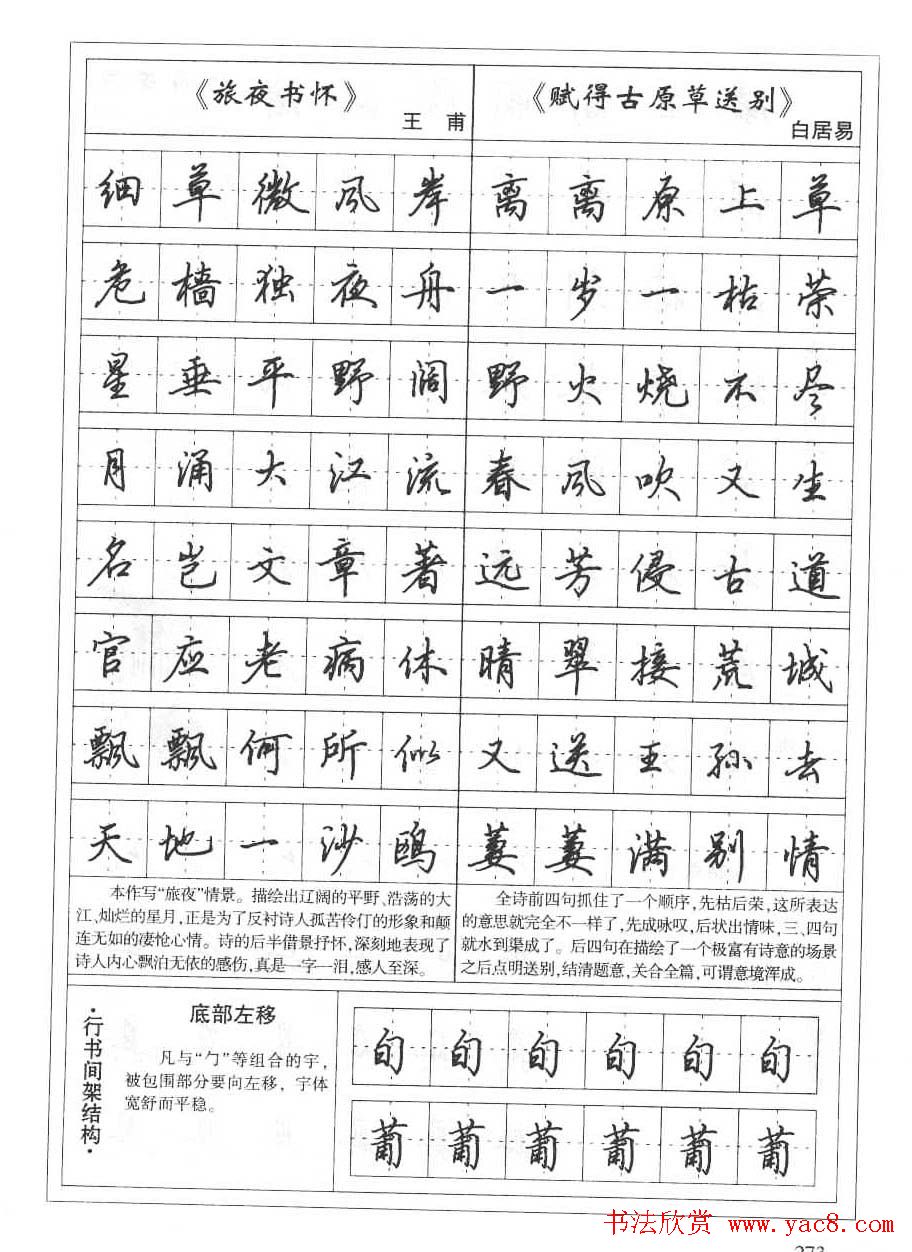 《旅夜书怀》
王 甫
细草微风岸
危樯独夜舟
星垂平野阔
月涌大江流
名岂文章著
官应老病休
飘飘何所似
天地一沙鸥
本作写“旅夜”情景。描绘出辽阔的平野、浩荡的大
江、灿烂的星月，正是为了反衬诗人孤苦伶仃的形象和颠
连无如的凄怆心情。诗的后半借景抒怀，深刻地表现了
诗人内心飘泊无依的感伤，真是一字一泪，感人至深。
《赋得古原草送别》
白居易
离离原上草
一岁一枯荣
野火烧不尽
春风吹又生
远芳侵古道
晴翠接荒城
又送王孙去
萋萋满别情
全诗前四句抓住了一个顺序，先枯后荣，这所表达
的意思就完全不一样了，先成咏叹，后状出情味，三、四句
就水到渠成了。后四句在描绘了一个极富有诗意的场景
之后点明送别，结清题意，关合全篇，可谓意境浑成。
·行书间架结构·
底部左移
凡与“勹”等组合的字，
被包围部分要向左移，字体
宽舒而平稳。
旬旬旬旬旬旬
葡葡葡葡葡葡
书法欣赏 www.yac8.com
273